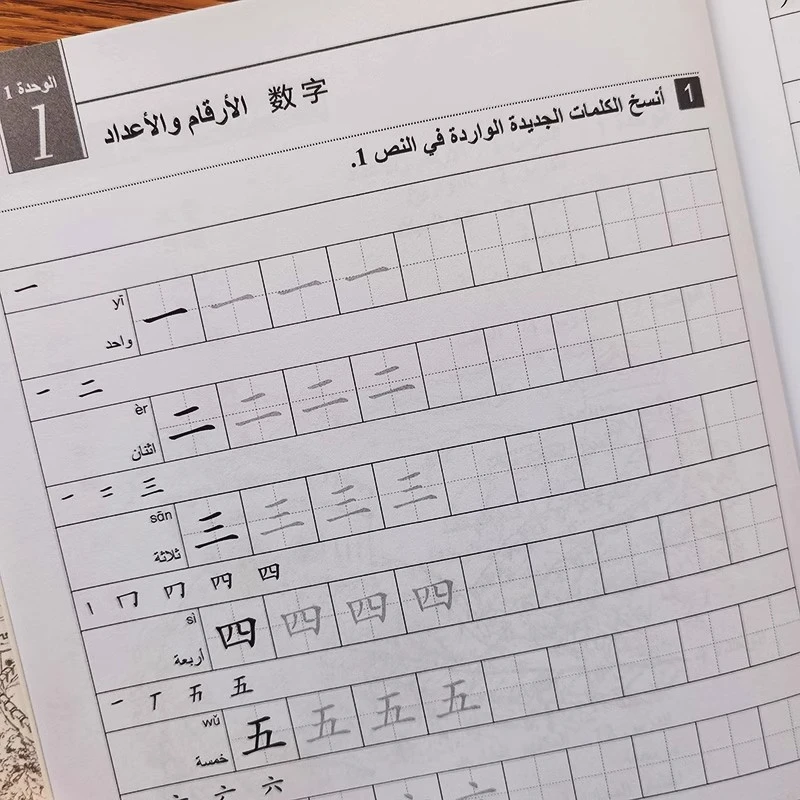 الوحدة 1
1
الأرقام والأعداد 数字
1 أنسخ الكلمات الجديدة الواردة في النص 1.
一
yī
واحد
一 一 一 一
一 二
èr
اثنان
二 二 二 二
一 二 三
sān
ثلاثة
三 三 三 三
丨 冂 四 四
sì
أربعة
四 四 四 四
一 丅 五
wǔ
خمسة
五 五 五 五
六 六